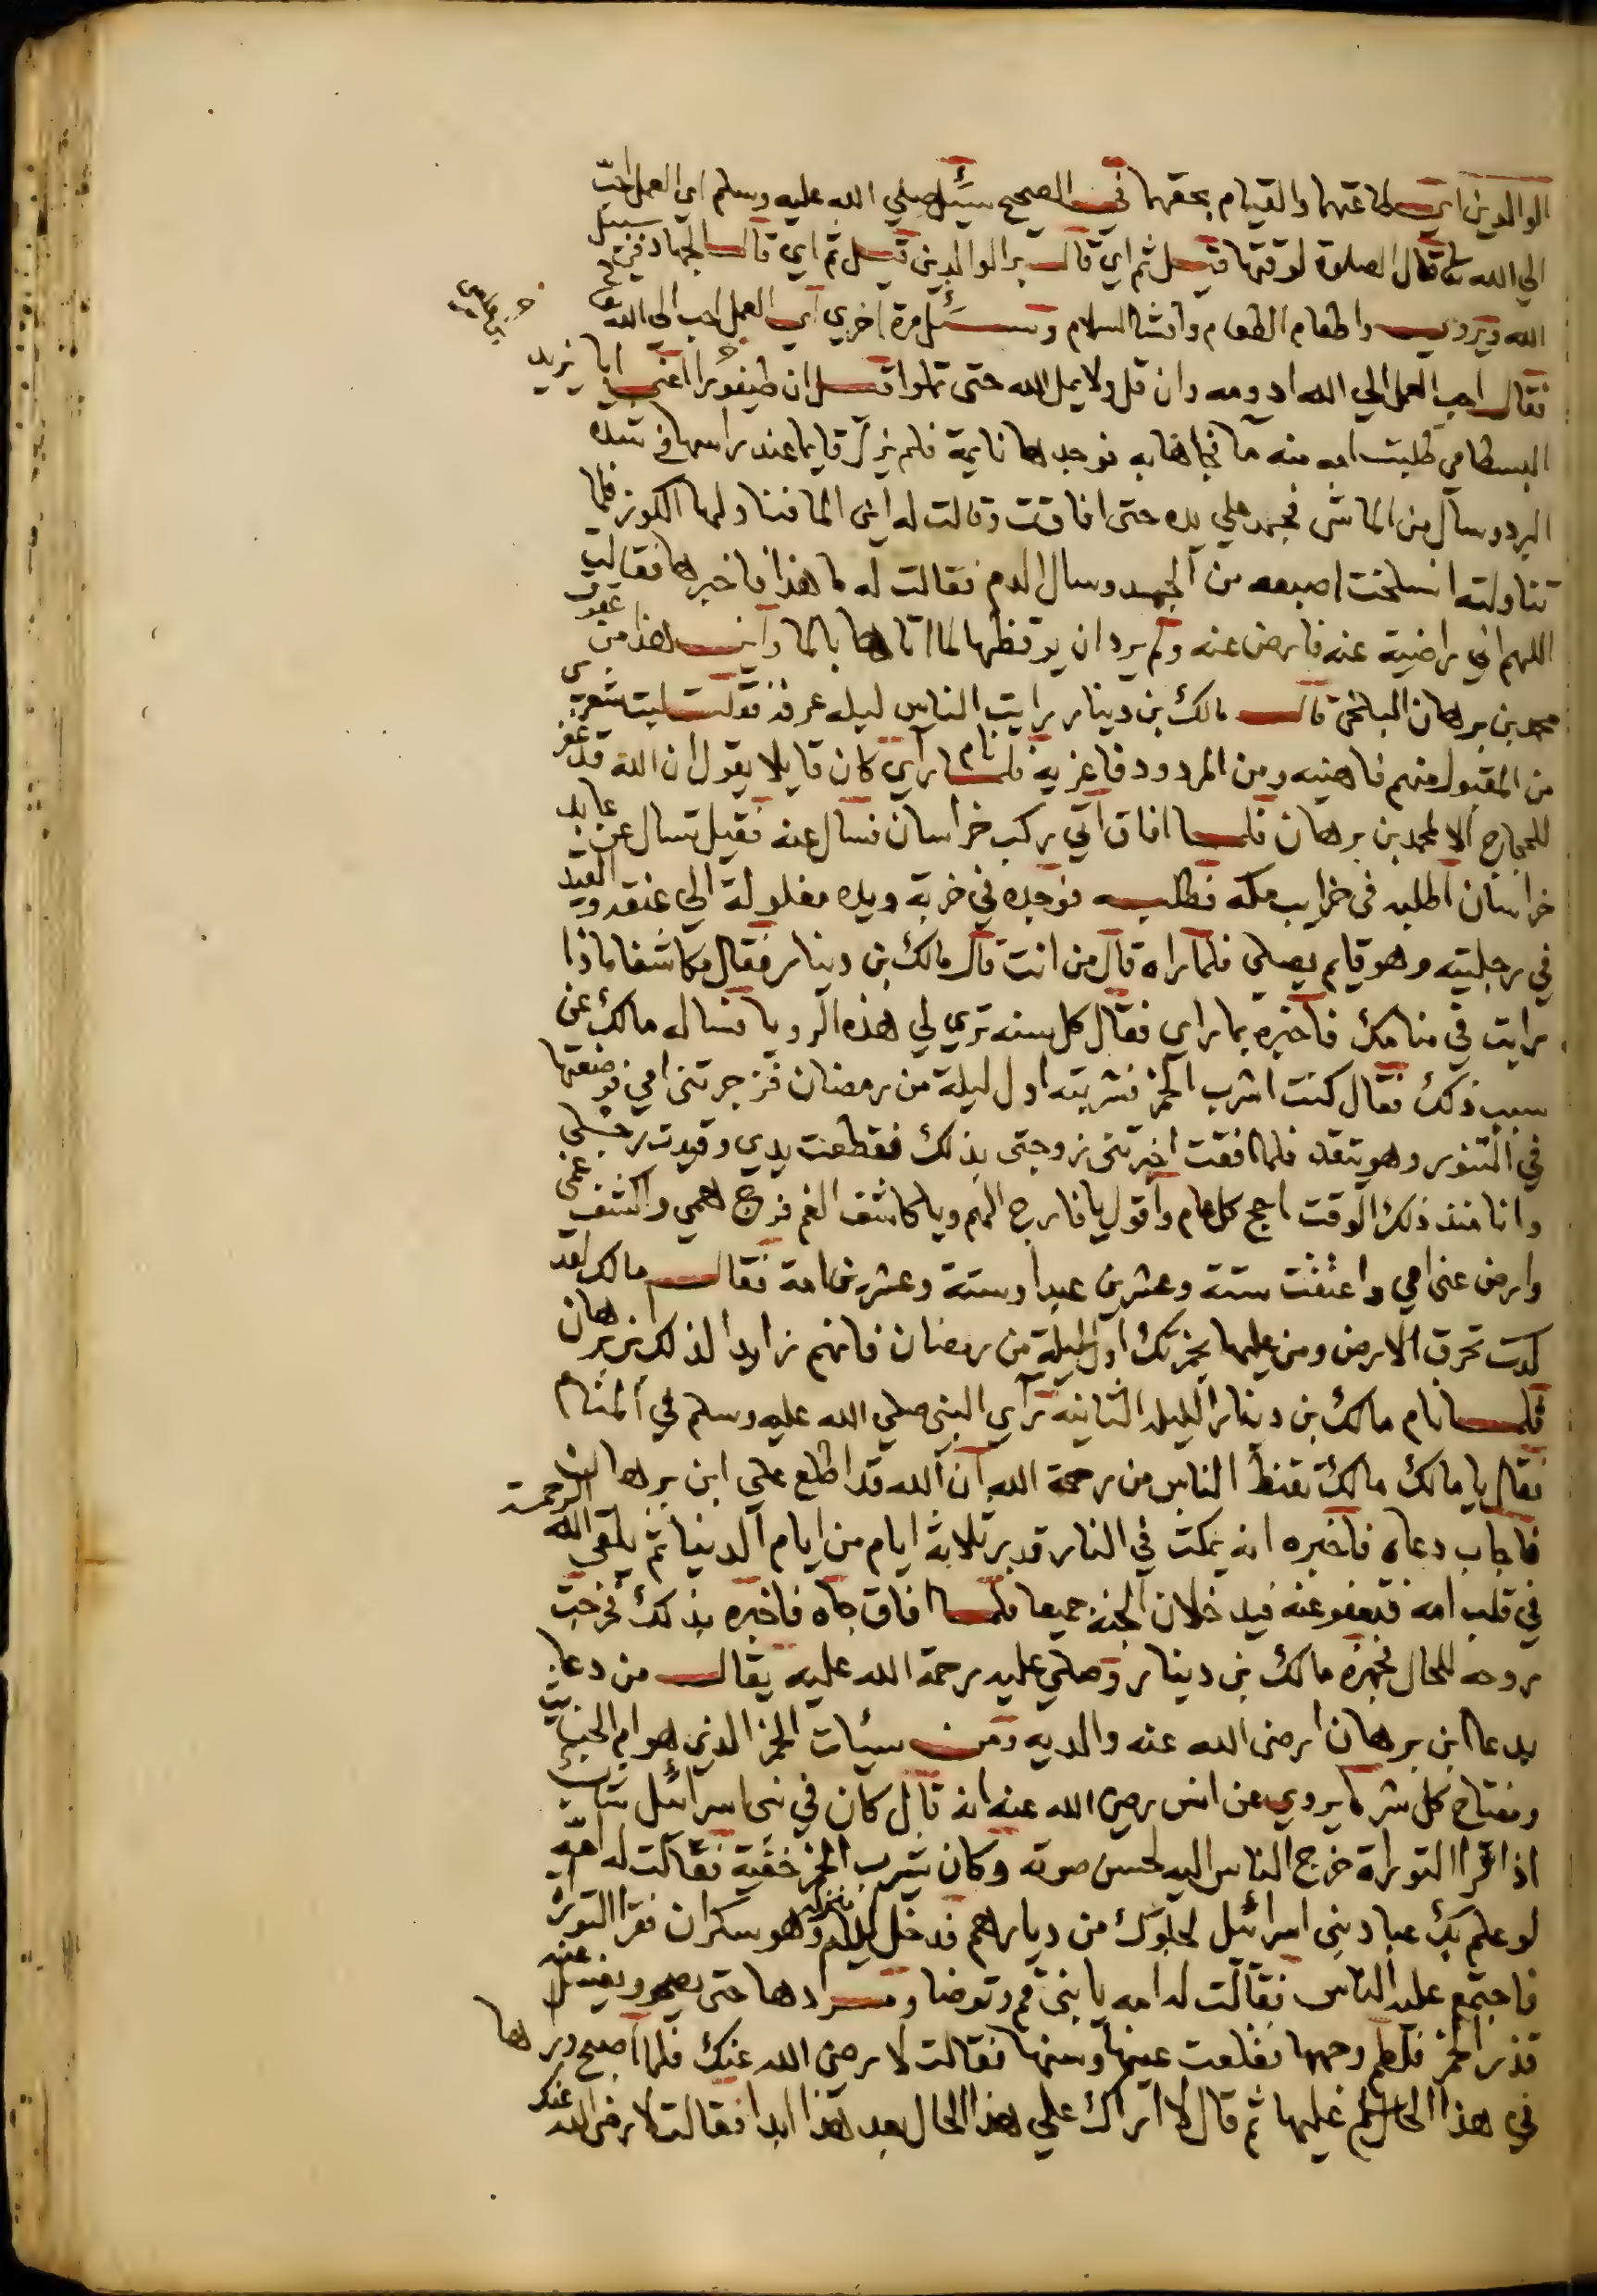 الوالدين اي طاعتهما والقيام بحقهما في الصحيح سئل صلي الله عليه وسلم اي العمل احب
الي الله تعالى قال الصلوة لوقتها قيل ثم اي قال بر الوالدين قيل ثم اي قال الجهاد في سبيل
الله ويروي واطعام الطعام وافشا السلام وسئل مرة اخري اي العمل احب الي الله
فقال احب العمل الي الله ادومه وان قل ولا يمل الله حتى تملوا قيل ان طيفورا اعني ابا يزيد
البسطامي طلبت امه منه ما فجاها به فوجدها نايمة فلم يزل قايما عند راسها في شدة
البرد وسال من الما شي فجمد علي يده حتى افاقت وقالت له اين الما فناولها الكوز فلما
تناولته انسلخت اصبعه من الجمد وسال الدم فقالت له ما هذا فاخبرها فقالت
اللهم اني راضية عنه فارض عنه ولم يرد ان يوقظها لما اتاها بالما واين هذا من عقوق
محمد بن برهان البلخي قال مالك بن دينار رايت الناس ليلة عرفة فقلت ليت شعري
من المقبول منهم فاهنيه ومن المردود فاعزيه فلما نام راي كان قايلا يقول ان الله قد غفر
للحجاج الا لمحمد بن برهان فلما افاق اتي ركب خراسان فسال عنه فقيل تسال عن عابد
خراسان اطلبه في خرايب مكة فطلبه فوجده في خربة ويده مغلولة الي عنقه والقيد
في رجليه وهو قايم يصلي فلما راه قال من انت قال مالك بن دينار فقال مكاشفا ماذا
رايت في منامك فاخبره بما راي فقال كل سنة تري لي هذه الرويا فساله مالك عن
سبب ذلك فقال كنت اشرب الخمر فشربته اول ليلة من رمضان فزجرتني امي فوضعتها
في التنور وهو يتقد فلما افقت اخبرتني زوجتي بذلك فقطعت يدي وقيدت رجلي
وانا منذ ذلك الوقت احج كل عام واقول يا فارج الهم ويا كاشف الغم فرج همي واكشف غمي
وارض عني امي واعتقت ستة وعشرين عبدا وستة وعشرين امة فقال مالك لقد
كدت تحرق الارض ومن عليها بخمرتك اول ليلة من رمضان فانهم زايدا لذلك بن برهان
فلما نام مالك بن دينار الليلة الثانية راي النبي صلي الله عليه وسلم في المنام
فقال يا مالك مالك تقنط الناس من رحمة الله ان الله قد اطلع علي ابن برهان
فاجاب دعاه فاخبره انه يمكث في النار قدر ثلاثة ايام من ايام الدنيا ثم يلقي الله الرحمة
في قلب امه فتعفو عنه فيدخلان الجنة جميعا فلما افاق جاه فاخبره بذلك فخرجت
روحه للحال فجهزه مالك بن دينار وصلي عليه رحمة الله عليه يقال من دعا
بدعا ابن برهان ارضى الله عنه والديه ومن سيئات الخمر الذي هو ام الخبايث
ومفتاح كل شر ما يروي عن انس رضى الله عنه انه قال كان في بني اسرائيل شاب
اذا قرا التوراة خرج الناس اليه لحسن صوته وكان يشرب الخمر خفية فقالت له امه
لو علم بك عباد بني اسرائيل لخلوك من ديارهم فدخل منزله وهو سكران فقرا التوراة
فاجتمع عليه الناس فقالت له امه يا بني قم وتوضا حتى يصح ويغسل عنه
قذر الخمر فلطم وجهها فقلعت عينها وسنها فقالت لا رضي الله عنك فلما اصبح وراها
في هذا الحال سلم عليها ثم قال لا اراك علي هذا الحال بعد هذا ابدا فقالت لا رضي الله عنك